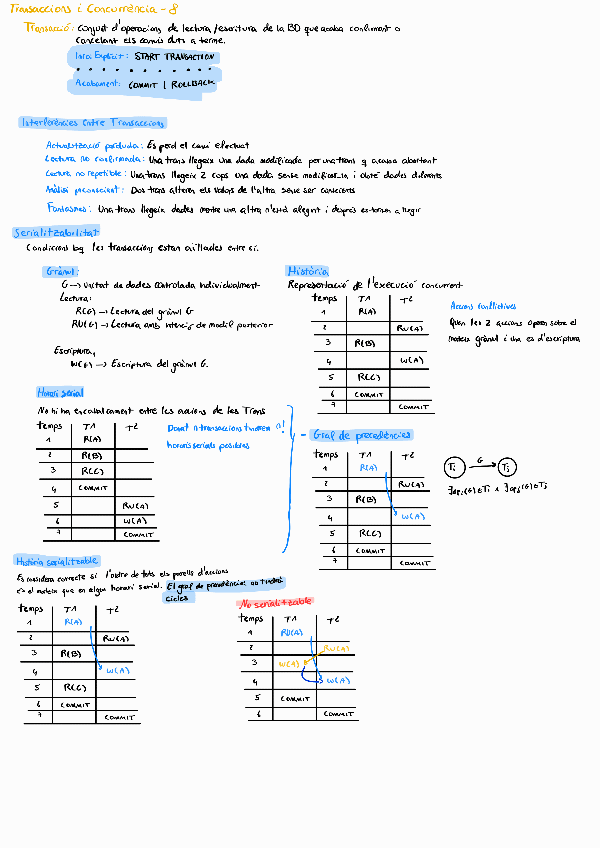 Transaccions i Concurrència - 8
Transacció: Conjunt d'operacions de lectura/escritura de la BD que acaba confirmant o
Cancelant els canvis duts a terme.
Inici Explícit: START TRANSACTION
Acabament: COMMIT | ROLLBACK
Interferències Entre Transaccions
Actualització perduda: Es perd el canvi efectuat
Lectura no confirmada: Una trans llegeix una dada modificada per una trans q acaba abortant
Lectura no repetible: Una trans llegeix 2 cops una dada sense modificar-la i obté dades diferents
Anàlisi inconscient: Dos trans alteren els valors de l'altra sense ser conscients
Fantasmes: Una trans llegeix dades mentre una altra n'està afegint i després es tornen a llegir
Serialitzabilitat
Condicions log les transaccions estan aïllades entre si.
Grànul:
G → unitat de dades controlada individualment
Lectura:
R(G) → Lectura del grànul G
RU(G) → Lectura amb intenció de modif posterior
Escriptura,
W(G) → Escriptura del grànul G.
Història
Representació de l'execució concurrent
temps T1 T2
1 R(A)
2 RU(A)
3 R(B)
4 W(A)
5 R(C)
6 COMMIT
7 COMMIT
Accions conflictives
Quan les 2 accions operen sobre el
mateix grànul i una es d'escriptura
Horari serial
No hi ha encavalcament entre les accions de les Trans
temps T1 T2
1 R(A)
2 R(B)
3 R(C)
4 COMMIT
5 RU(A)
6 W(A)
7 COMMIT
Donat n transaccions tindrem n!
horaris serials possibles
- Graf de precedències
temps T1 T2
1 R(A)
2 RU(A)
3 R(B)
4 W(A)
5 R(C)
6 COMMIT
7 COMMIT
Ti G Tj
Història serialitzable
Es considera correcte si l'ordre de tots els parells d'accions
és el mateix que en algun horari serial. El graf de precedències no tindrà
cicles
temps T1 T2
1 R(A)
2 RU(A)
3 R(B)
4 W(A)
5 R(C)
6 COMMIT
7 COMMIT
No serialitzable
temps T1 T2
1 RU(A)
2 RU(A)
3 W(A)
4 W(A)
5 COMMIT
6 COMMIT